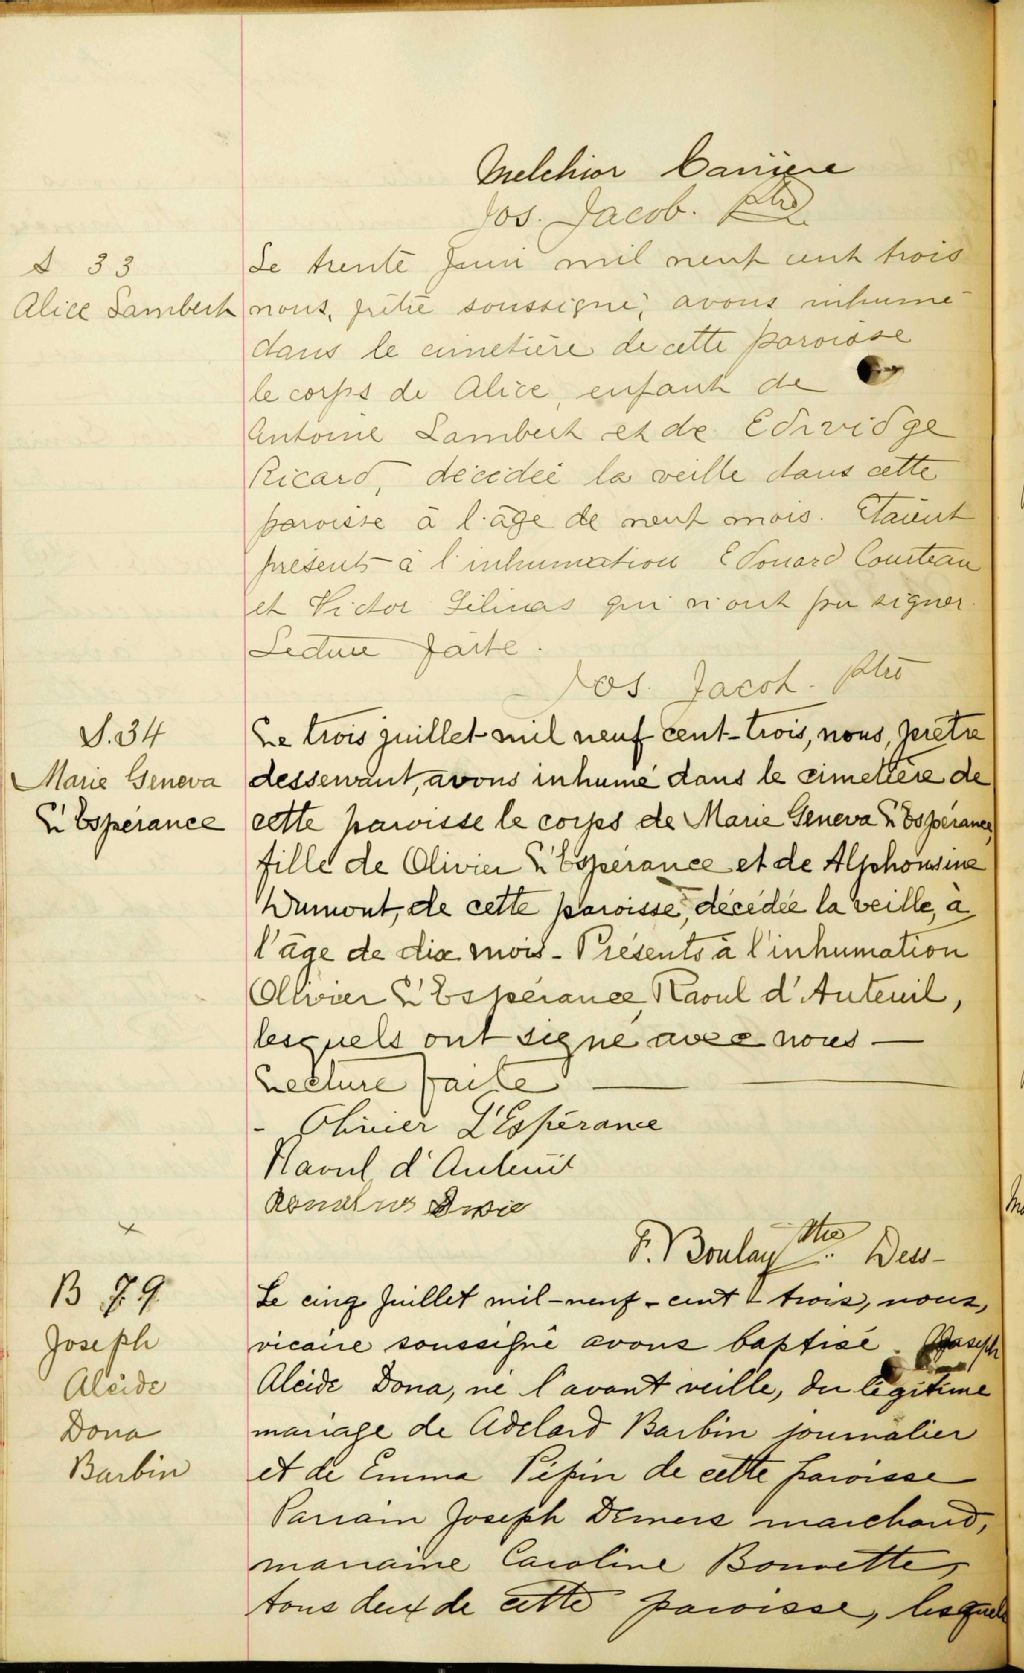 Melchior Carrière
Jos. Jacob. Ptre
S 33
Alice Lambert
Le trente Juin mil neuf cent trois
nous, prêtre soussigné, avons inhumé
dans le cimetière de cette paroisse
le corps de Alice, enfant de
Antoine Lambert et de Edwidge
Ricard, décédée la veille dans cette
paroisse à l'âge de neuf mois. Etaient
présents à l'inhumation Edouard Courteau
et Victor Gélinas qui n'ont pu signer.
Lecture faite.
Jos. Jacob. Ptre
S. 34
Marie Geneva
L'Espérance
Le trois juillet mil neuf cent-trois, nous, prêtre
desservant, avons inhumé dans le cimetière de
cette paroisse le corps de Marie Geneva L'Espérance,
fille de Olivier L'Espérance et de Alphonsine
Dumont, de cette paroisse, décédée la veille, à
l'âge de dix mois - Présents à l'inhumation
Olivier L'Espérance, Raoul d'Auteuil,
lesquels ont signé avec nous —
Lecture faite —
- Olivier L'Espérance
Raoul d'Auteuil
F. Boulay Ptre Dess-
B 79
Joseph
Alcide
Dona
Barbin
Le cinq Juillet mil-neuf-cent-trois, nous,
vicaire soussigné avons baptisé Joseph
Alcide Dona, né l'avant veille, du légitime
mariage de Adelard Barbin journalier
et de Emma Pépin de cette paroisse
Parrain Joseph Demers marchand,
marraine Caroline Bouvette,
tous deux de cette paroisse, lesquels